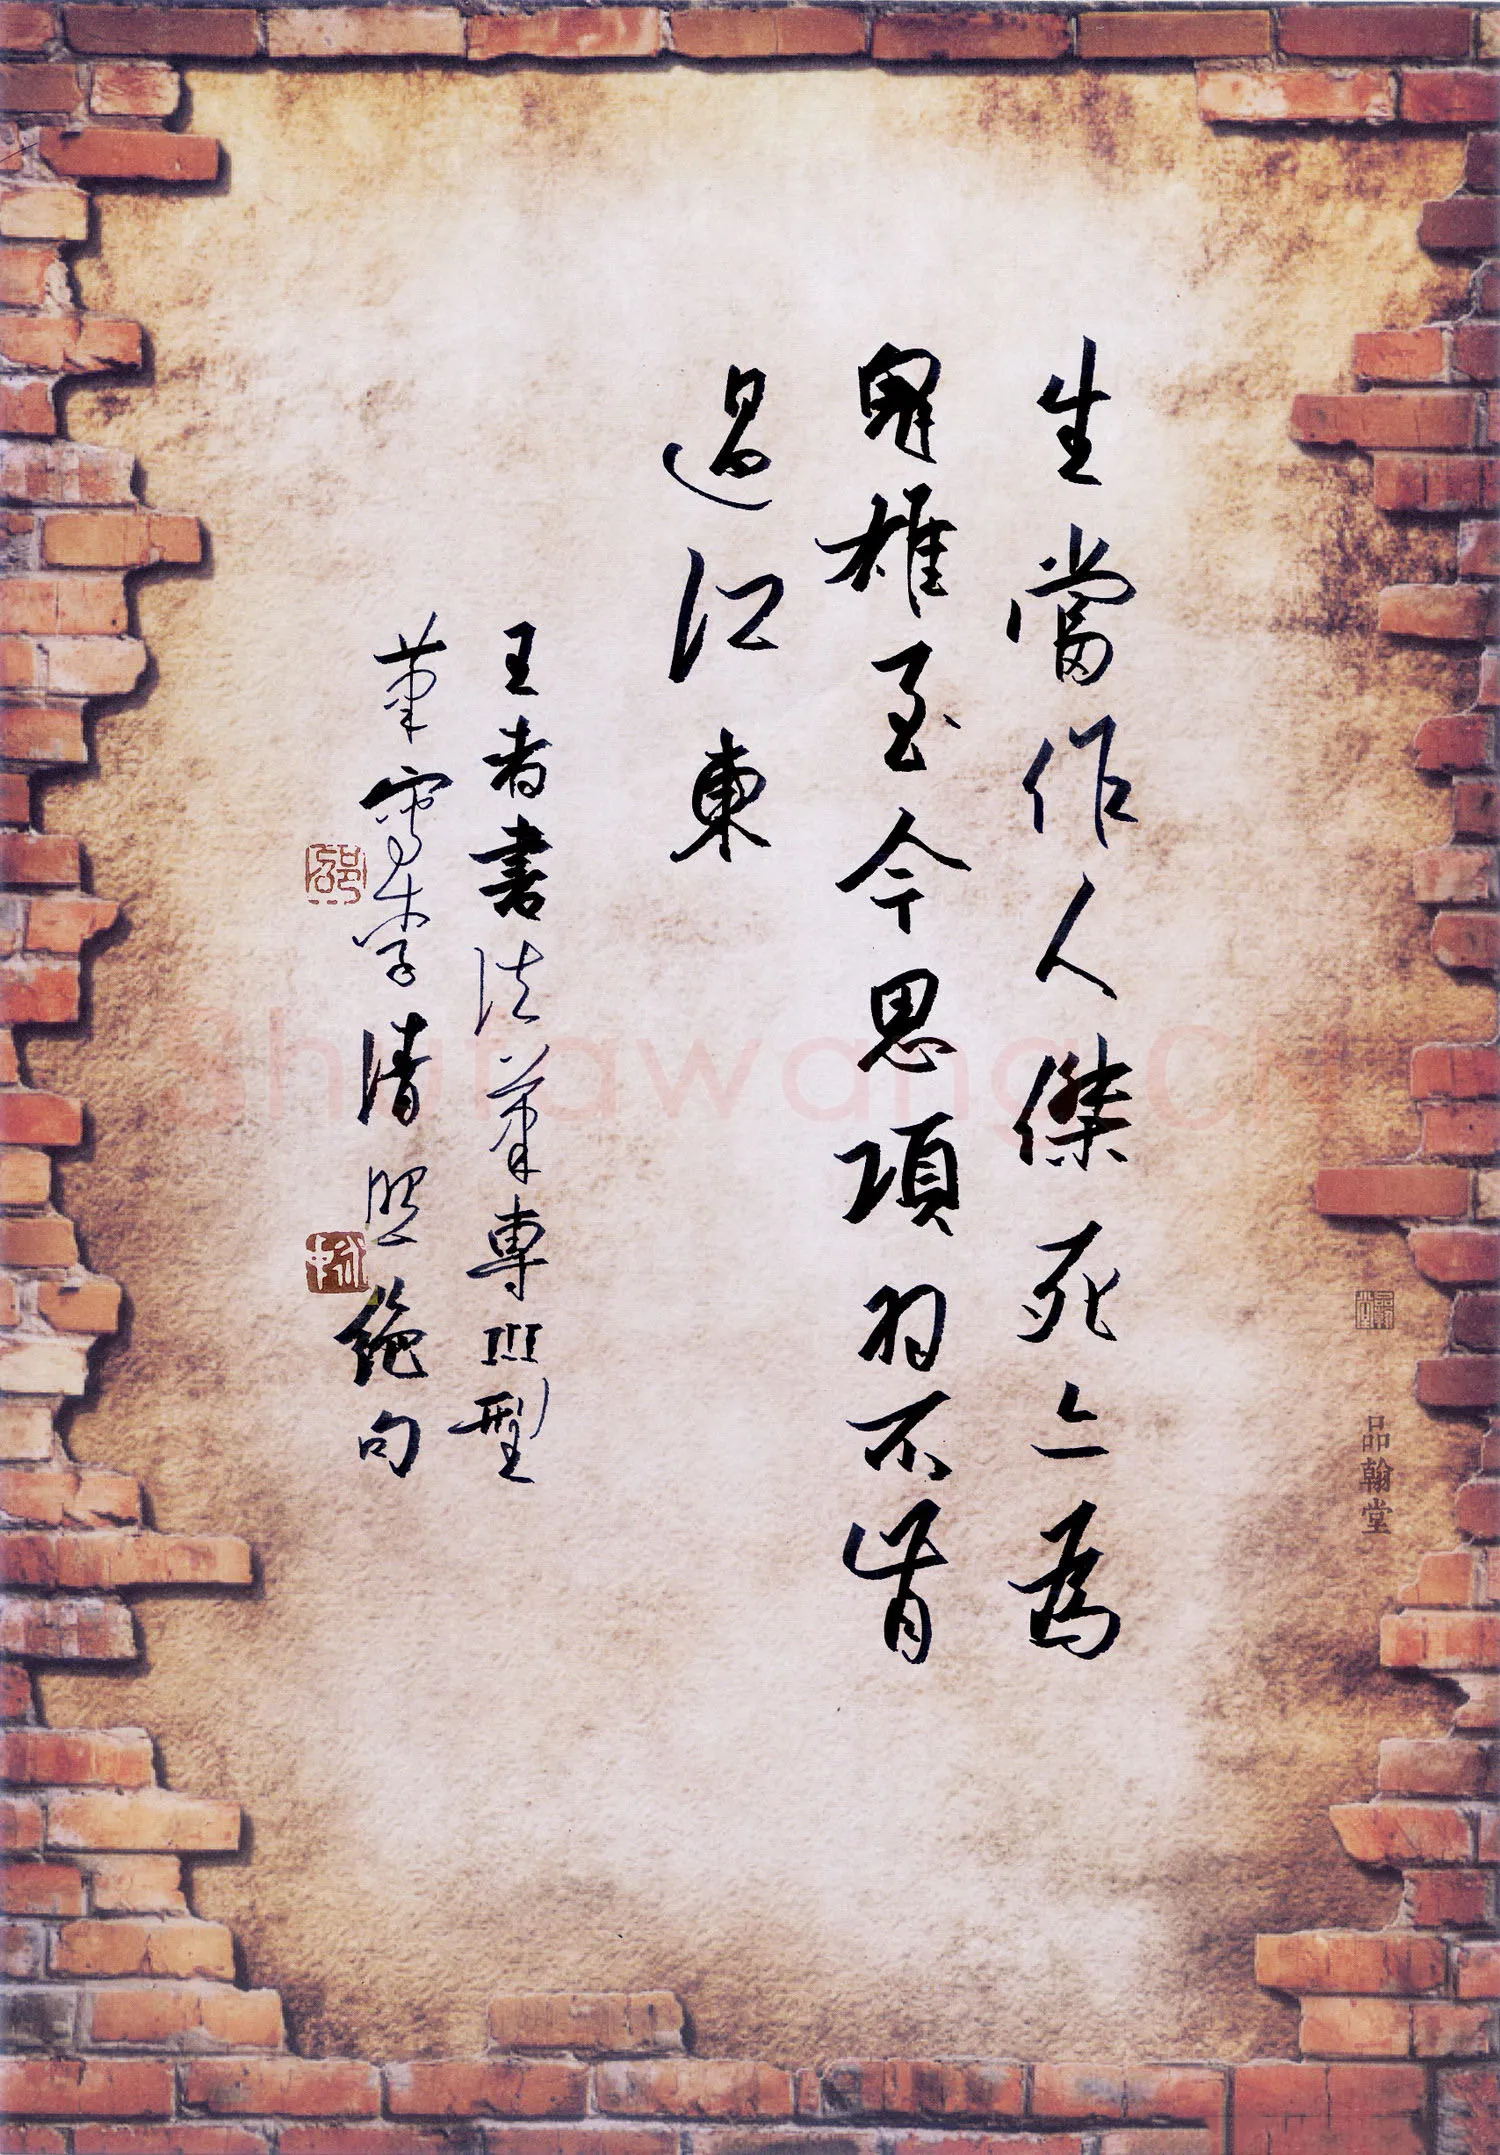 生當作人傑死亦為
鬼雄至今思項羽不肯
過江東
王者書法筆專Ⅲ型
筆寫李清照絕句
品翰堂
Shufawang.CN